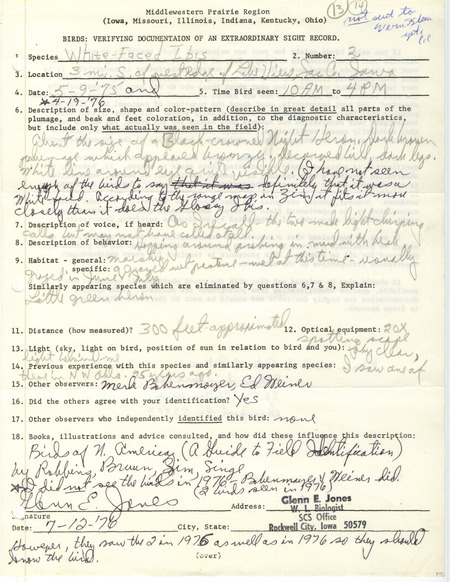 Middlewestern Prairie Region
(Iowa, Missouri, Illinois, Indiana, Kentucky, Ohio)
13 14
not sent to
BIRDS: VERIFYING DOCUMENTAION OF AN EXTRAORDINARY SIGHT RECORD.
1. Species White-Faced Ibis 2. Number: 2
3. Location 3 mi. S. of west edge of Lake View, Sac Co. Iowa
4. Date: 5-9-75 and 5. Time Bird seen: 10 AM to 4 PM
*4-19-76
6. Description of size, shape and color-pattern (describe in great detail all parts of the
plumage, and beak and feet coloration, in addition, to the diagnostic characteristics,
but include only what actually was seen in the field):
About the size of a Black-crowned Night Heron, dark brown
plumage which appeared bronzy, decurved bill, dark legs.
White line around eye I have not seen
enough of the bird to say that it was definitely that it was a
White faced. According to the range map in Zim, it fits it more
closely than it does the Glossy Ibis.
7. Description of voice, if heard: One of the two made light chirping
calls but may not have called
8. Description of behavior: Hopping around probing in mud with beak
9. Habitat - general: marshy
specific: Grazed out pasture - wet at this time - usually
grazed in June & July
Similarly appearing species which are eliminated by questions 6,7 & 8, Explain:
Little green heron
11. Distance (how measured)? 300 feet approximated 12. Optical equipment: 20X
spotting scope
13. Light (sky, light on bird, position of sun in relation to bird and you): Sky clear,
light behind me
14. Previous experience with this species and similarly appearing species: I saw one of
these in N.W. Okla. 25 years ago.
15. Other observers: Merle Bohenmoyer, Ed Weiner
16. Did the others agree with your identification? Yes
17. Other observers who independently identified this bird: none
18. Books, illustrations and advice consulted, and how did these influence this description:
Birds of N. America (A Guide to Field Identification)
by Robbins, Bruun, Zim, Singe
*I did not see the birds in 1976 - Bohenmoyer & Weiner did.
(2 birds seen in 1976)
Glenn E. Jones
Signature
Address: Glenn E. Jones
W. L. Biologist
SCS Office
Date: 7-12-76 City, State: Rockwell City, Iowa 50579
However, they saw the 2 in 1975 as well as in 1976 so they should
know the bird.
(over)